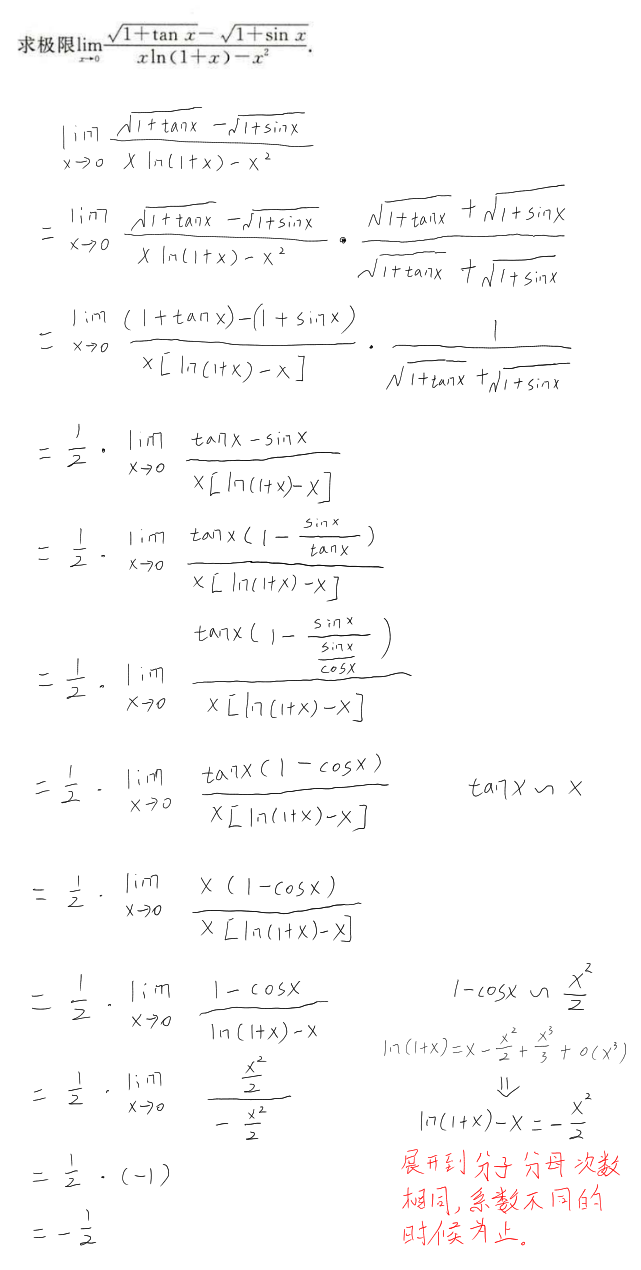 求极限lim x→0 (√(1+tan x) − √(1+sin x)) / (xln(1+x)−x²).
lim x→0 (√(1+tanx) − √(1+sinx)) / (x ln(1+x) − x²)
= lim x→0 (√(1+tanx) − √(1+sinx)) / (x ln(1+x) − x²) · (√(1+tanx) + √(1+sinx)) / (√(1+tanx) + √(1+sinx))
= lim x→0 ((1+tanx)−(1+sinx)) / (x[ln(1+x)−x]) · 1 / (√(1+tanx) + √(1+sinx))
= 1/2 · lim x→0 (tanx − sinx) / (x[ln(1+x)−x])
= 1/2 · lim x→0 tanx(1 − sinx/tanx) / (x[ln(1+x)−x])
= 1/2 · lim x→0 tanx(1 − sinx/(sinx/cosx)) / (x[ln(1+x)−x])
= 1/2 · lim x→0 tanx(1−cosx) / (x[ln(1+x)−x]) tanx ∽ x
= 1/2 · lim x→0 x(1−cosx) / (x[ln(1+x)−x])
= 1/2 · lim x→0 (1−cosx) / (ln(1+x)−x) 1−cosx ∽ x²/2
ln(1+x)=x−x²/2+x³/3+o(x³)
= 1/2 · lim x→0 (x²/2) / (−x²/2) ⇓
ln(1+x)−x=−x²/2
= 1/2 · (−1)
= −1/2
展开到分子分母次数
相同,系数不同的
时候为止。